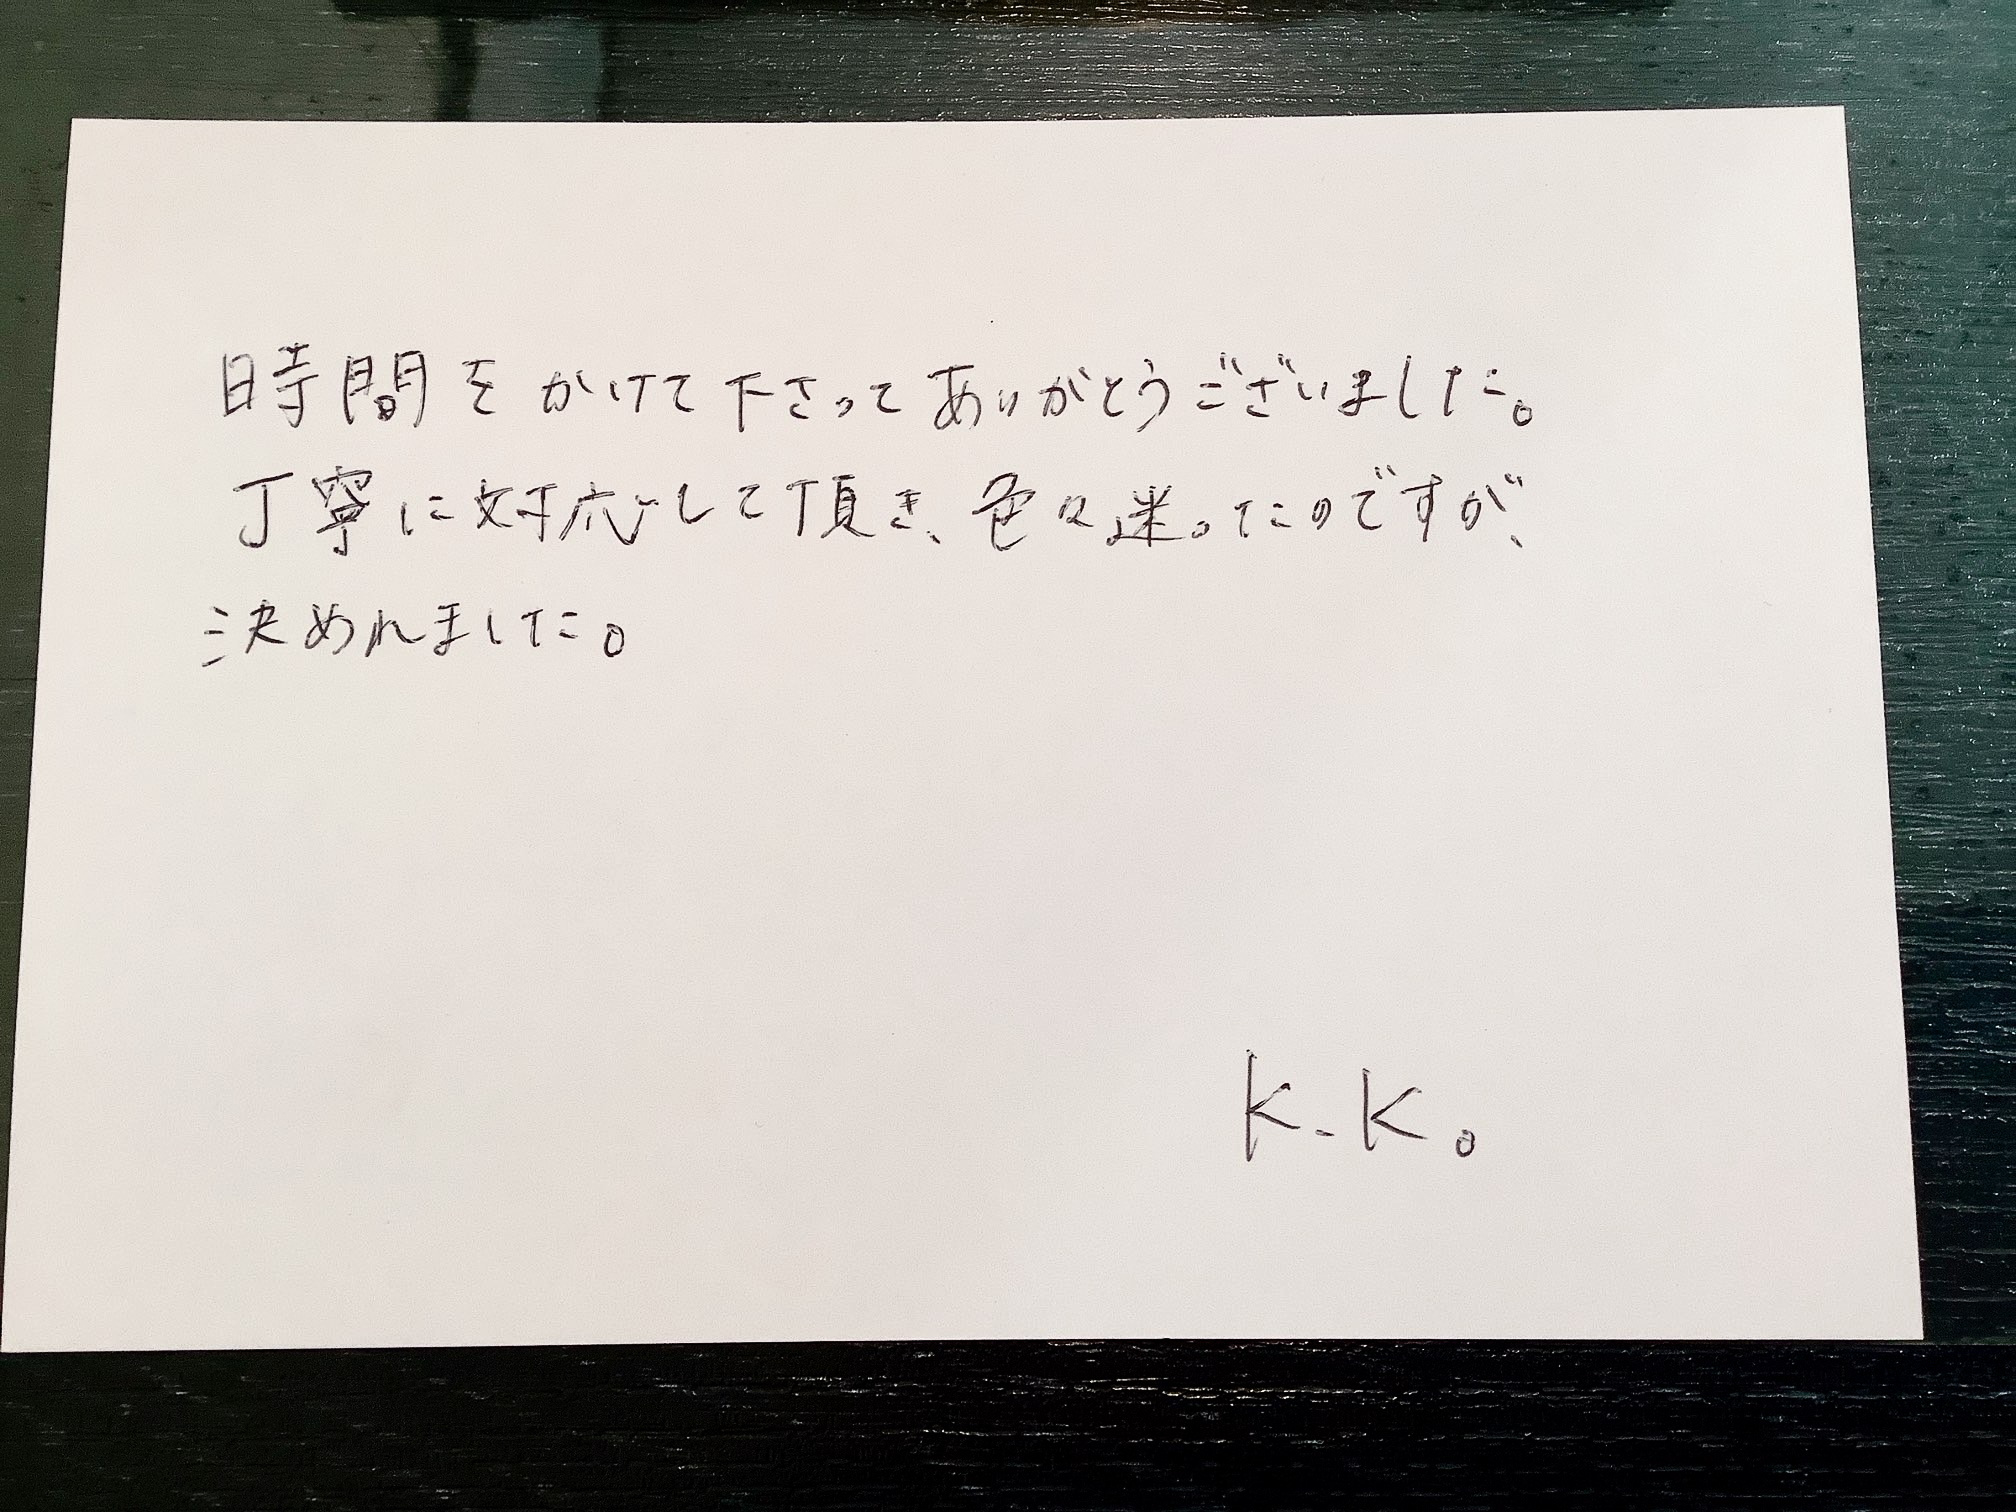 時間をかけて下さってありがとうございました。
丁寧に対応して頂き、色々迷ったのですが、
決めれました。
K.K。